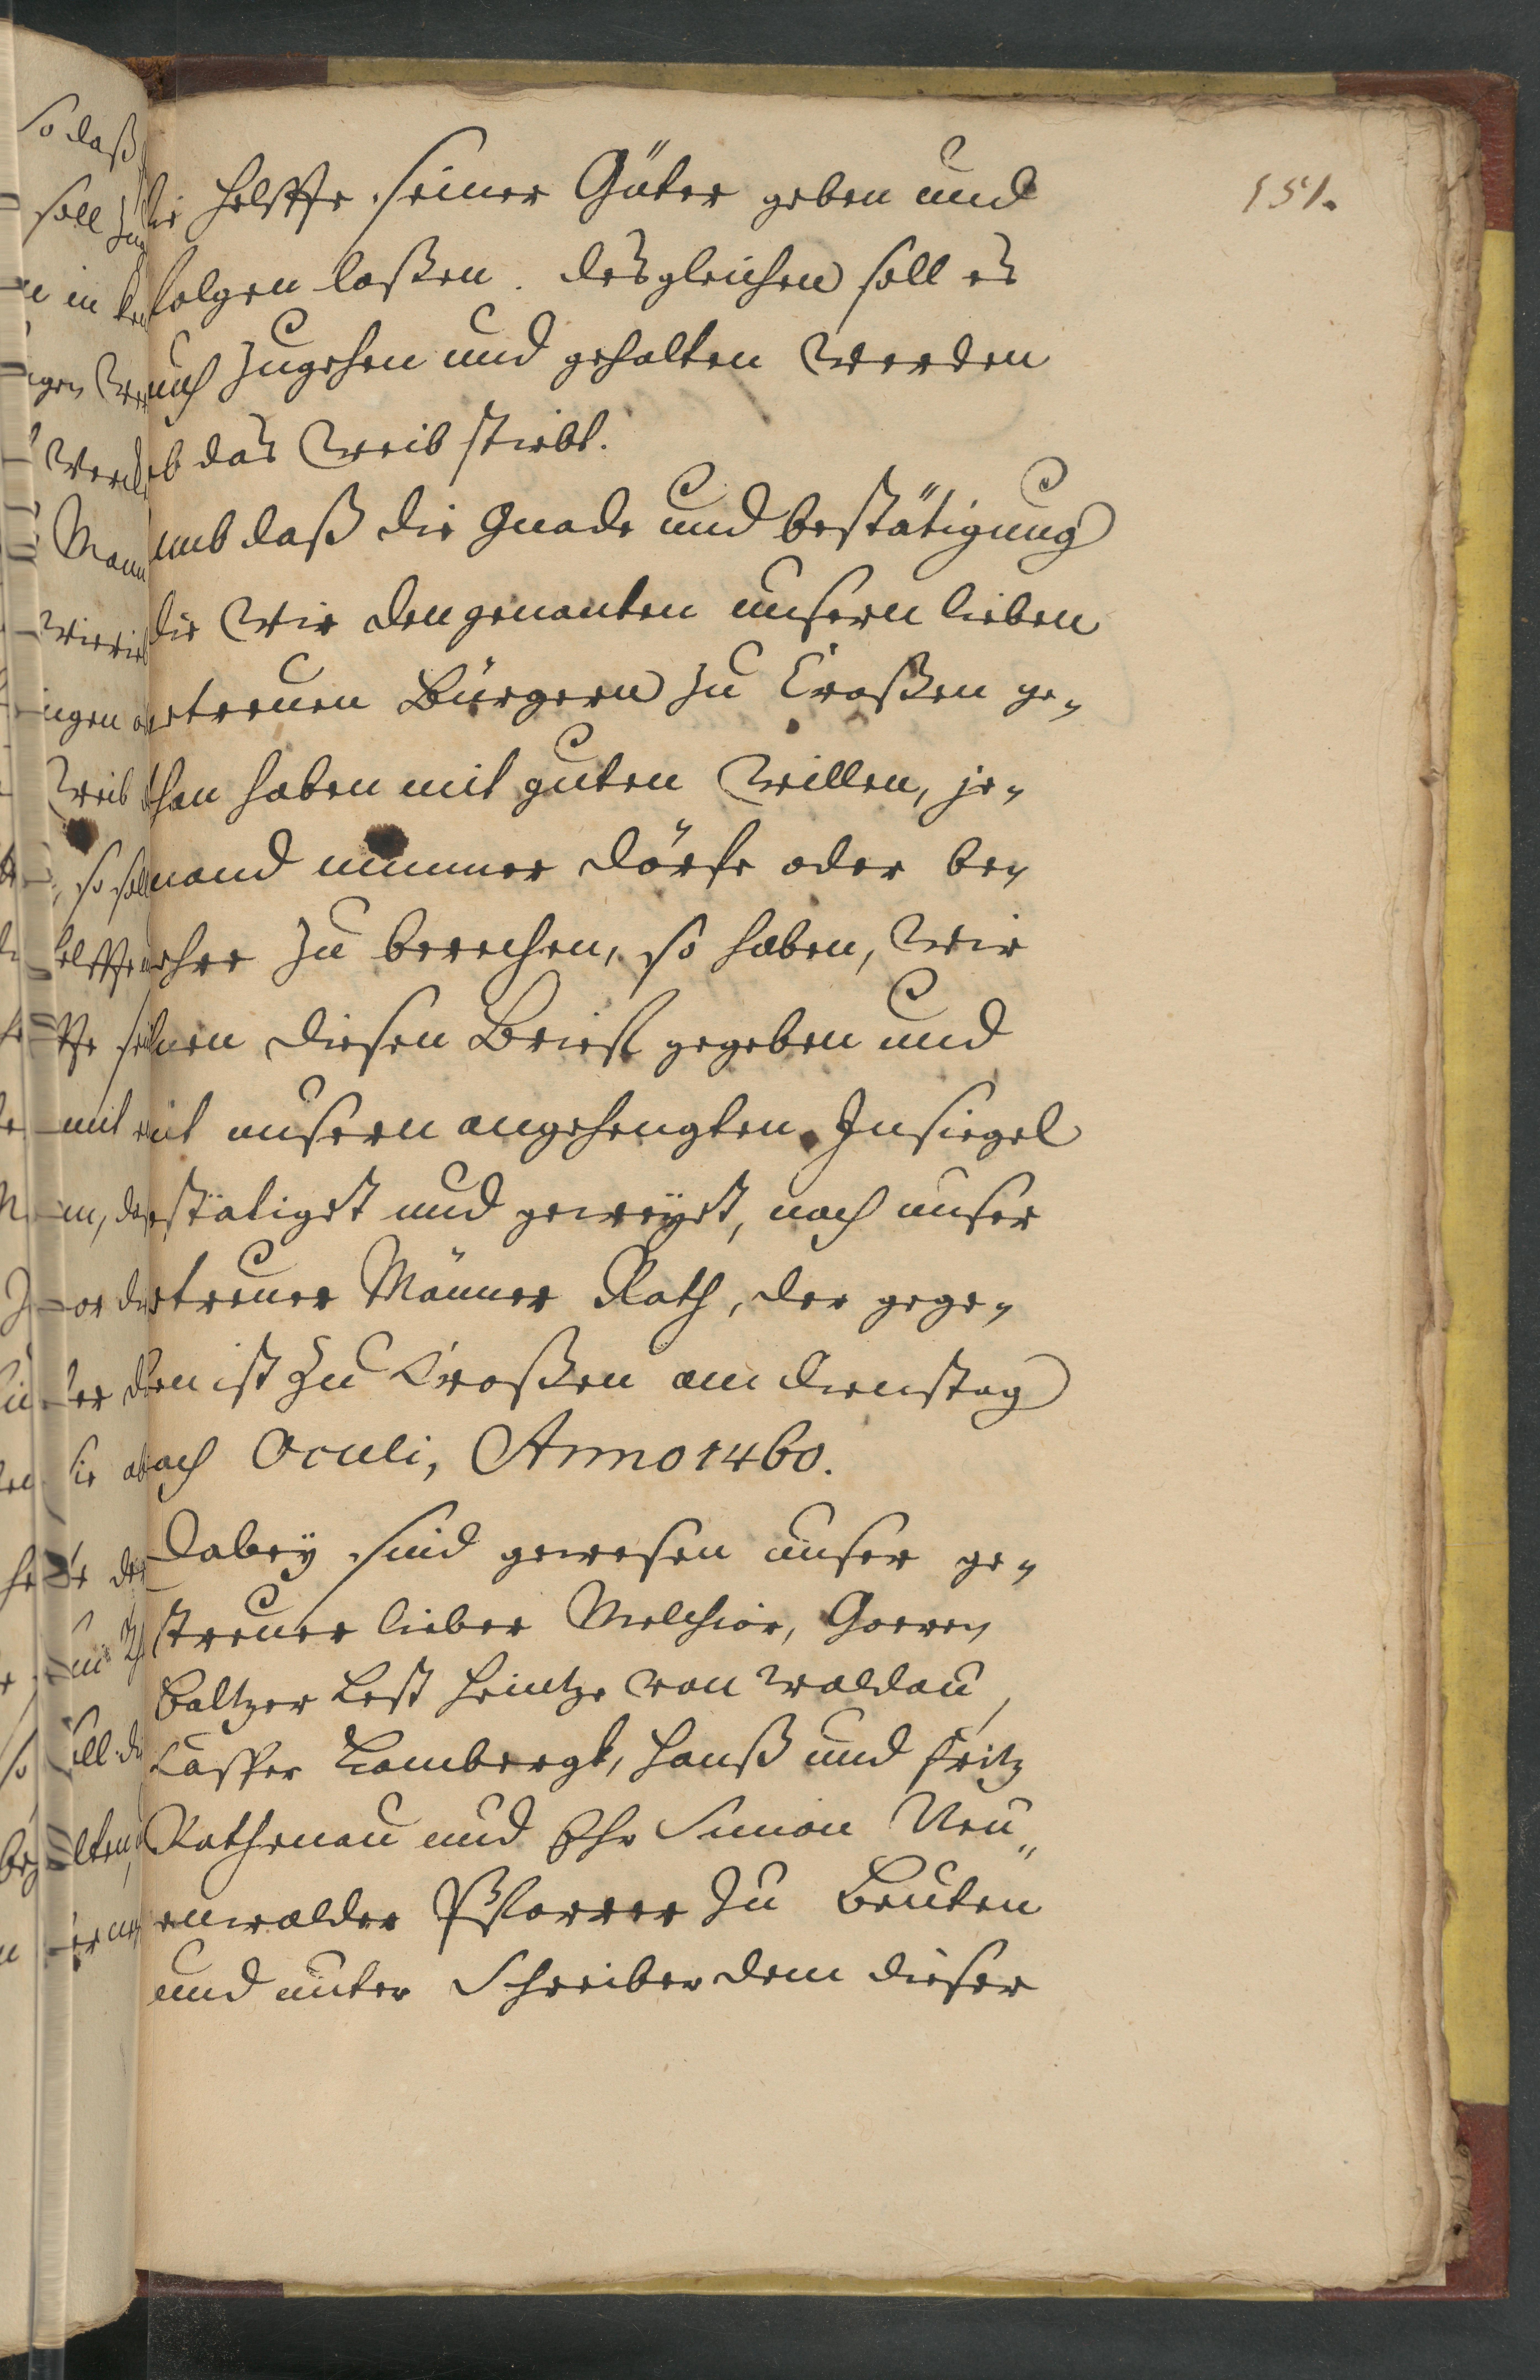 151.
die Helffte seiner Güter geben und
folgen laßen. desgleichen soll es
auch zugehen und gehalten werden
ob das Weib stirbt.
umb daß die Gnade und bestätigung
die Wir den genanten unsern lieben
getreuen Bürgern zu Croßen ge-
than haben mit guten Willen, je-
mand nimmer dörfe oder be-
gehre zu brechen, so haben, Wir
ihnen diesen Brieff gegeben und
mit unsern angehengten Insiegel
bestätiget und geveyst, nach unser
getreuer Männer Rath, der gege-
ben ist zu Croßen am dienstag
nach Oculi, Anno 1460.
Dabey sind gewesen unser ge-
treuer lieber Melchior,
Baltzer Lest Heintze von Waldau,
Casper Lambergk, Hanß und Fritz
Rathenau und Ehr Simon Neu-
enwalder Pfarrer zu Beuten
und unter Schreiber dem dieser